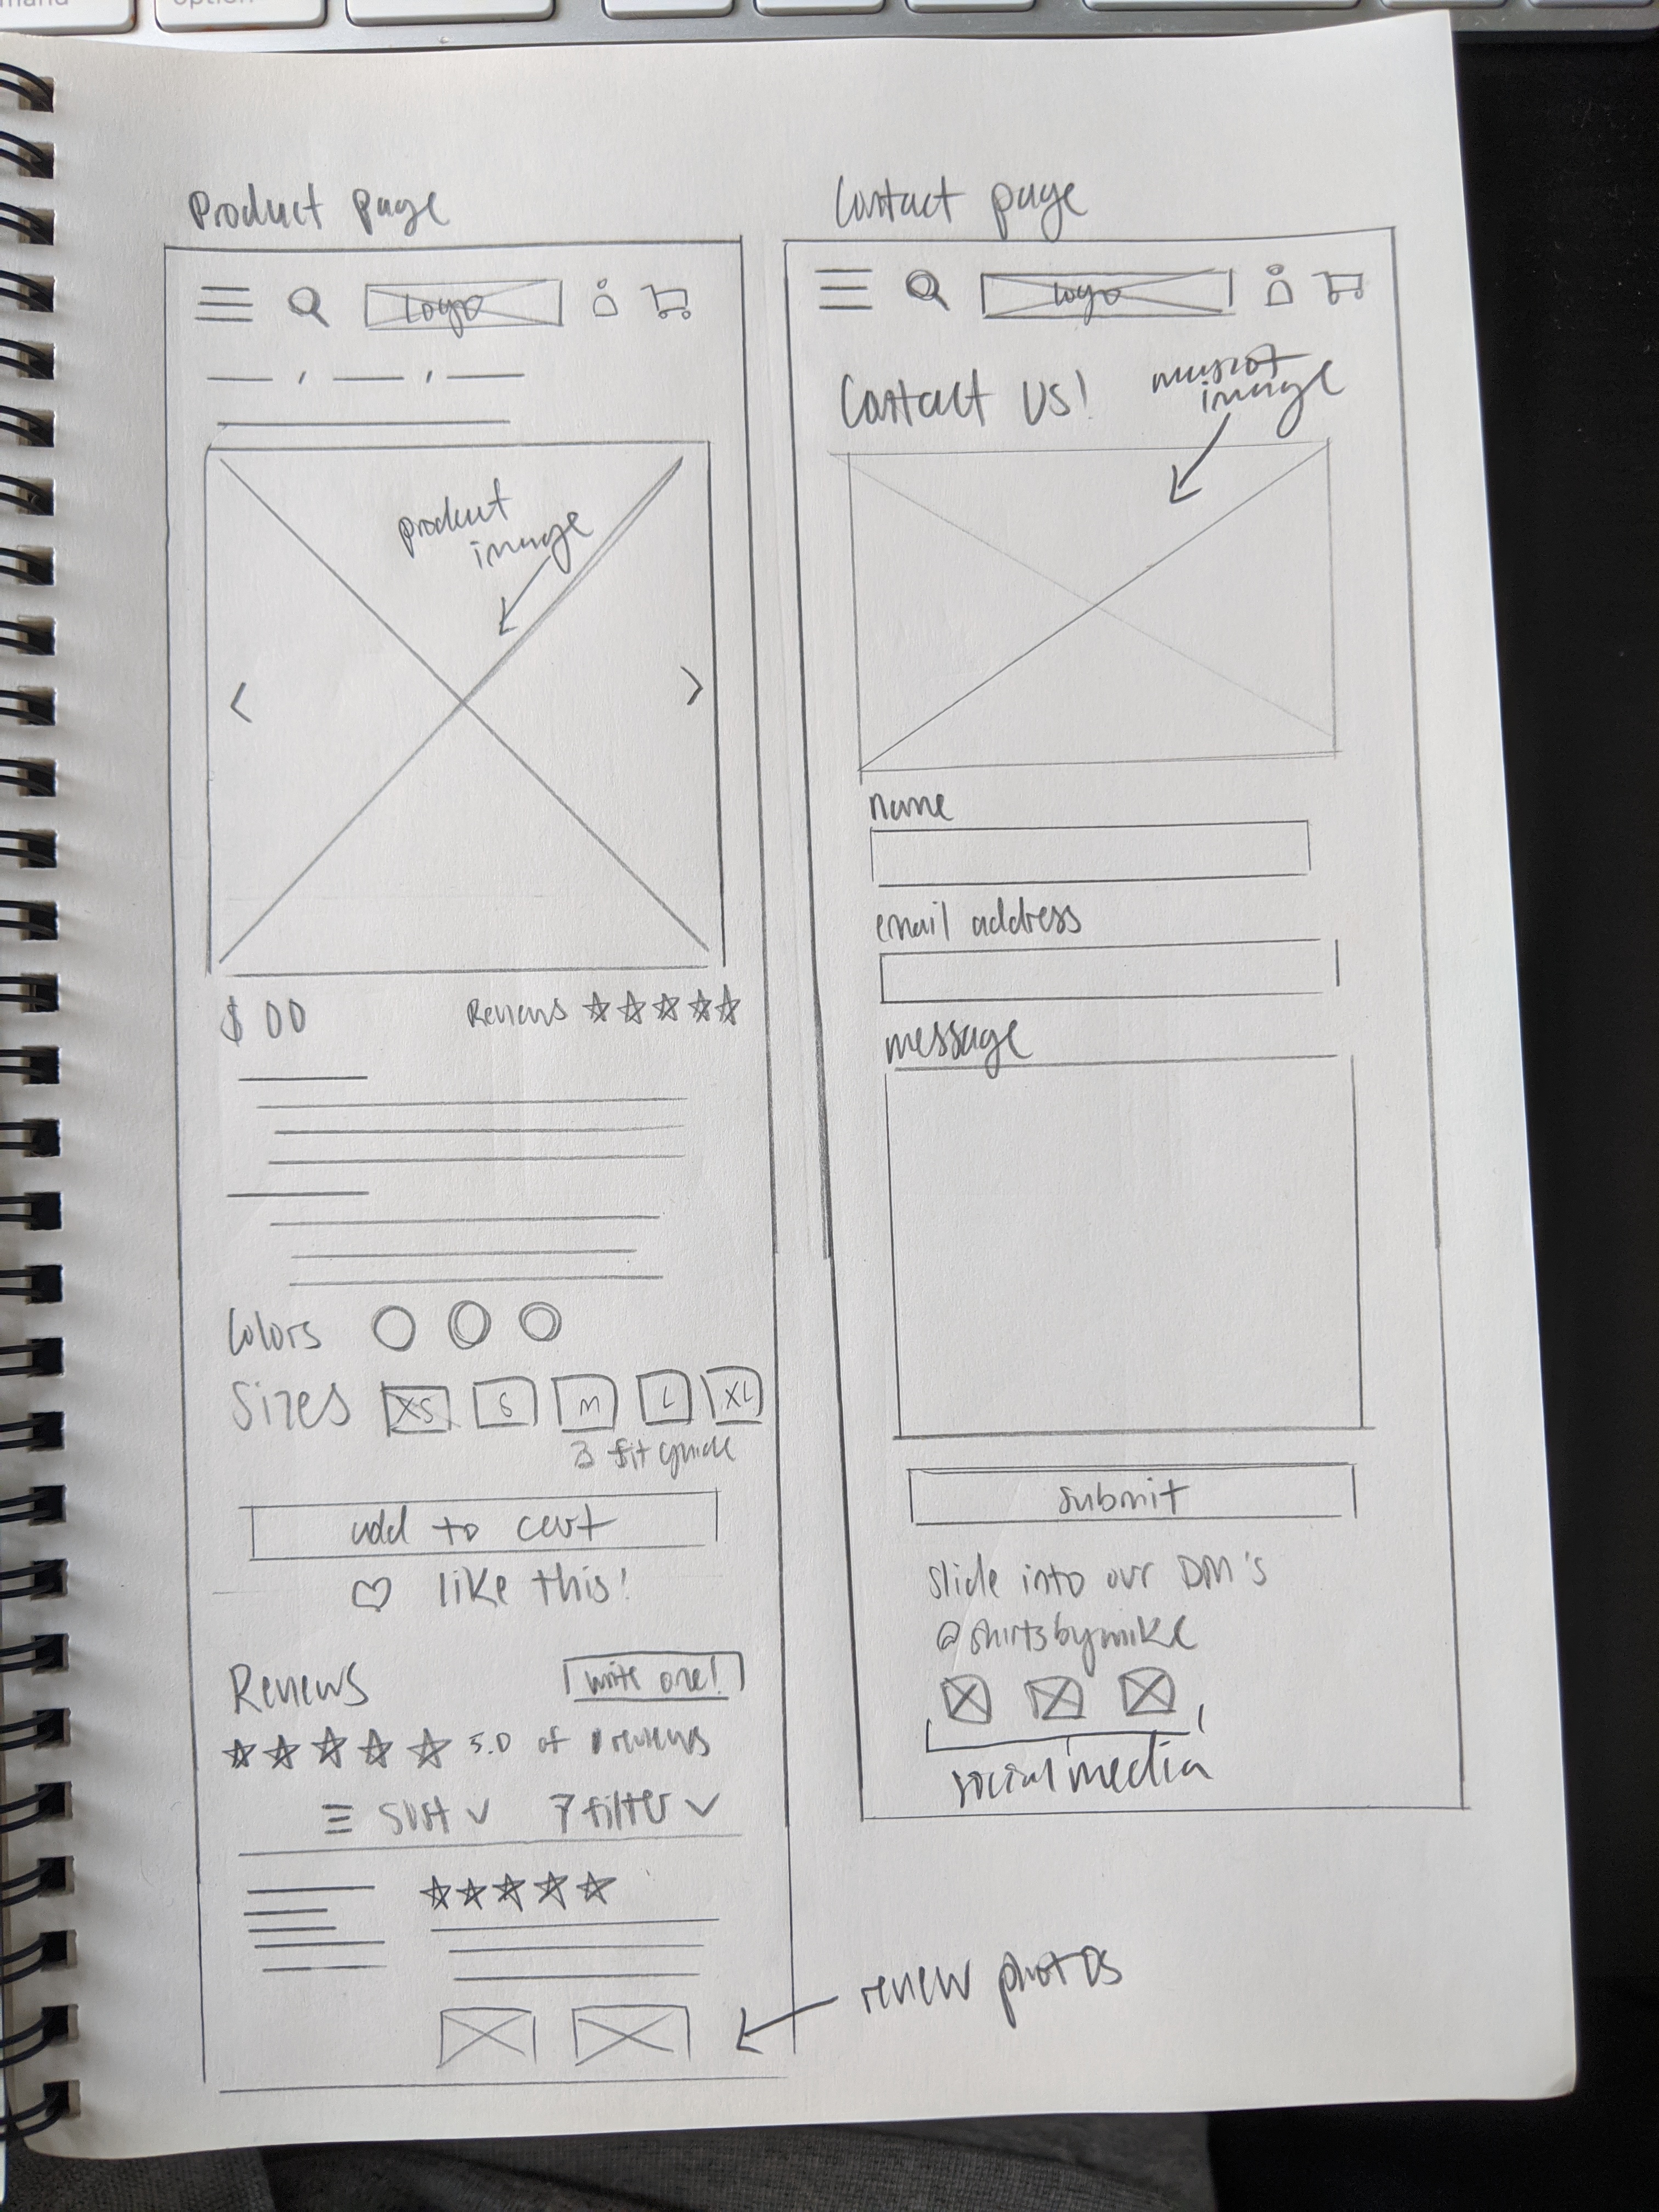 option
Product page
logo
product
image
<
>
$ 00
Reviews ☆☆☆☆☆
Colors
Sizes XS S M L XL
fit guide
add to cart
♡ like this!
Reviews
write one!
☆☆☆☆☆ 5.0 of reviews
Sort
filter
☆☆☆☆☆
review photos
Contact page
logo
Contact US!
mascot
image
name
email address
message
submit
slide into our DM's
@shirtsbymike
social media